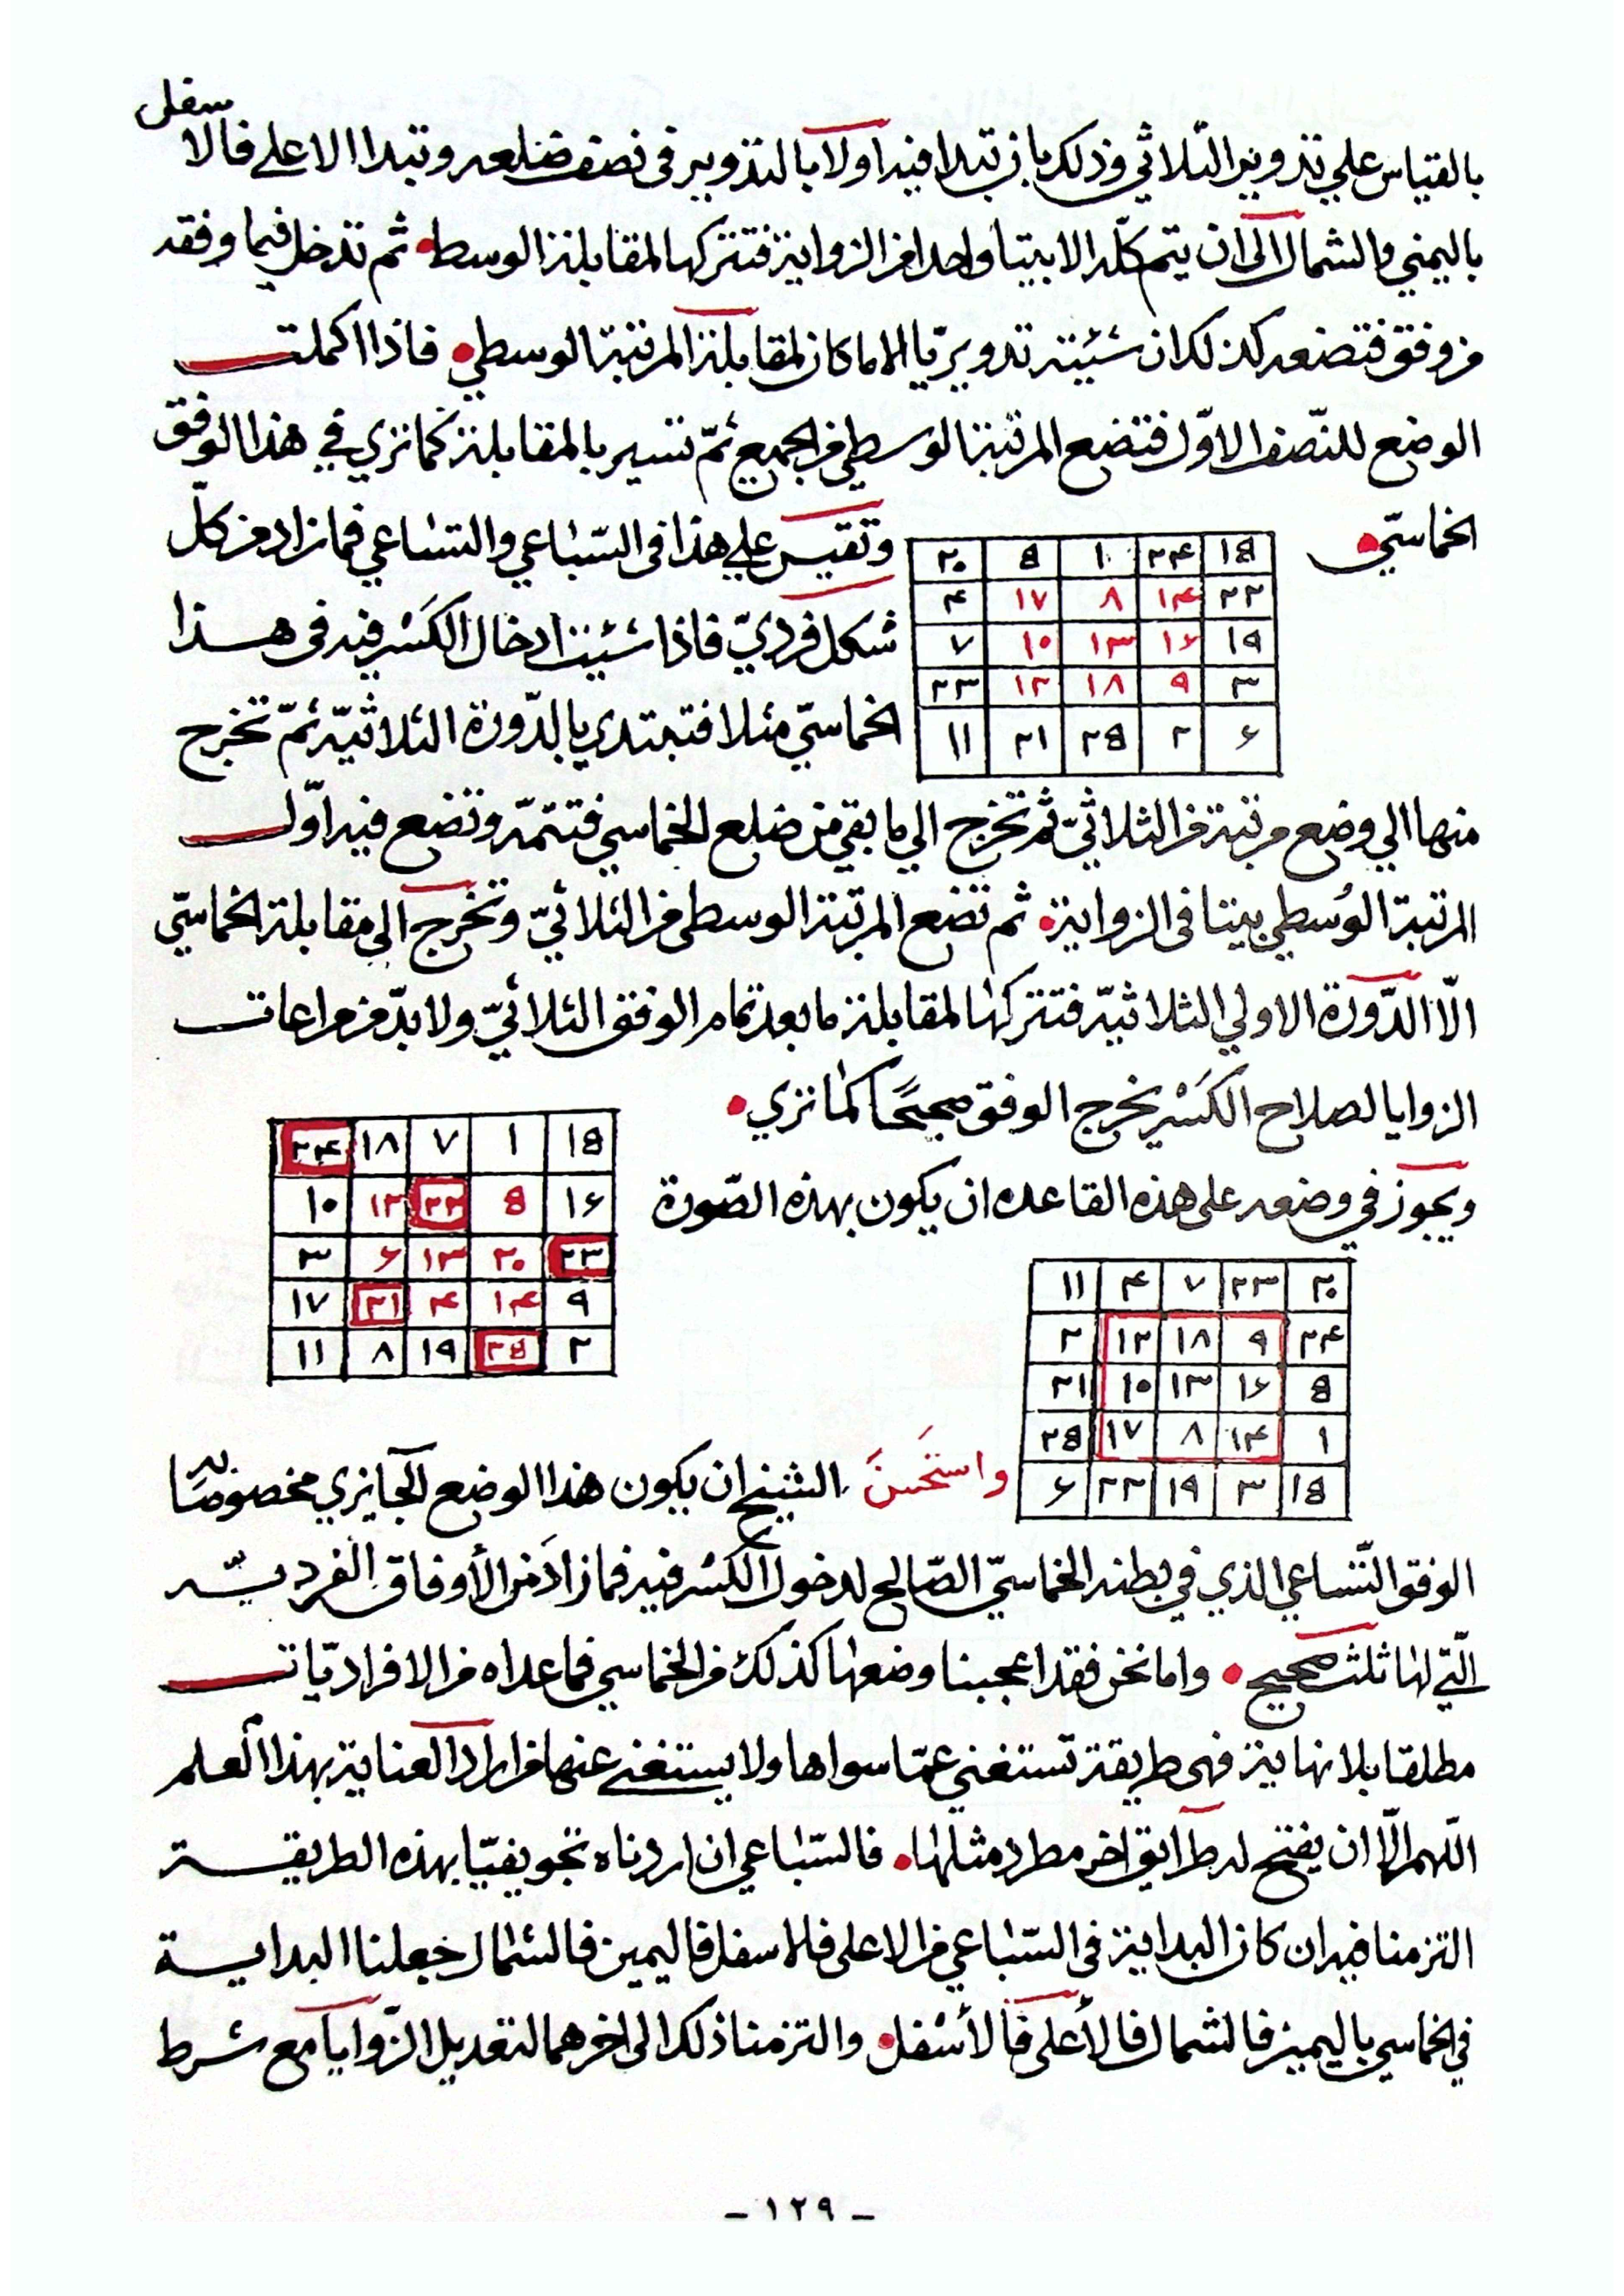 بالقياس علي تدوير الثلاثي وذلك بان تبدا فيه اولا بالتدوير في نصف ضلعه وتبدا الاعلى فالاسفل
باليمني والشمال الى ان يتم كله الا بيتا واحدا من الزواية فتتركها لمقابلة الوسط ثم تدخل فيما وفقه
من وفق فتضعه كذلك ان شئيته تدويريا الا ما كان لمقابلة المرتبة الوسطي فاذا اكملت
الوضع للنصف الاول فتضع المرتبة الوسطي من الجميع ثم تسير بالمقابلة كما تري في هذا الوفق
الخماسي
١٥ ٢۴ ١ ٥ ٢٠
٢٢ ١۴ ٨ ١٧ ۴
١٩ ١۶ ١٣ ١٠ ٧
٣ ٩ ١٨ ١٢ ٢٣
۶ ٢ ٢٥ ٢١ ١١
وتقيس علي هذا في السباعي والتساعي فما زاد من كل
شكل فردي فاذا شئيت ادخال الكسر فيه في هذا
الخماسي مثلا فتبتدي بالدورة الثلاثية ثم تخرج
منها الي وضع مرتبة من الثلاثي ثم تخرج الي ما بقي من ضلع الخماسي فتتمه وتضع فيه اول
المرتبة الوسطي بيتا في الزواية ثم تضع المرتبة الوسطى من الثلاثي وتخرج الى مقابلة الخماسي
الا الدورة الاولي الثلاثية فتتركها لمقابلة ما بعد تمام الوفق الثلاثي ولا بد من مراعات
الزوايا لصلاح الكسر يخرج الوفق صحيحا كما تري
١٥ ١ ٧ ١٨ ٢۴
١۶ ٥ ٢٢ ١٢ ١٠
٢٣ ٢٠ ١٣ ۶ ٣
٩ ١۴ ۴ ٢١ ١٧
٢ ٢٥ ١٩ ٨ ١١
ويجوز في وضعه على هذه القاعده ان يكون بهذه الصورة
٢٠ ٢٣ ٧ ۴ ١١
٢۴ ٩ ١٨ ١٢ ٢
٥ ١۶ ١٣ ١٠ ٢١
١ ١۴ ٨ ١٧ ٢٥
١٥ ٣ ١٩ ٢٢ ۶
واستحسن الشيخ ان يكون هذا الوضع الجايزي مخصوصا به
الوفق التساعي الذي في بطنه الخماسي الصالح لدخول الكسر فيه فما زاد من الأوفاق الفرديه
التي لها ثلث صحيح واما نحن فقد اعجبنا وضعها كذلك من الخماسي فما عداه من الافراديات
مطلقا بلا نهاية فهى طريقة تستغني عما سواها ولا يستغنى عنها من اراد العناية بهذا العلم
اللهم الا ان يفتح له طرايق اخر مطرد مثلها فالسباعي ان اردناه تجويفيا بهذه الطريقة
التزمنا فيه ان كان البداية في السباعي من الاعلى فالاسفل فاليمين فالشمال جعلنا البداية
في الخماسي باليمين فالشمال فالأعلى فالأسفل والتزمنا ذلك الى اخرهما لتعديل الزوايا مع شرط
- ١٢٩ -